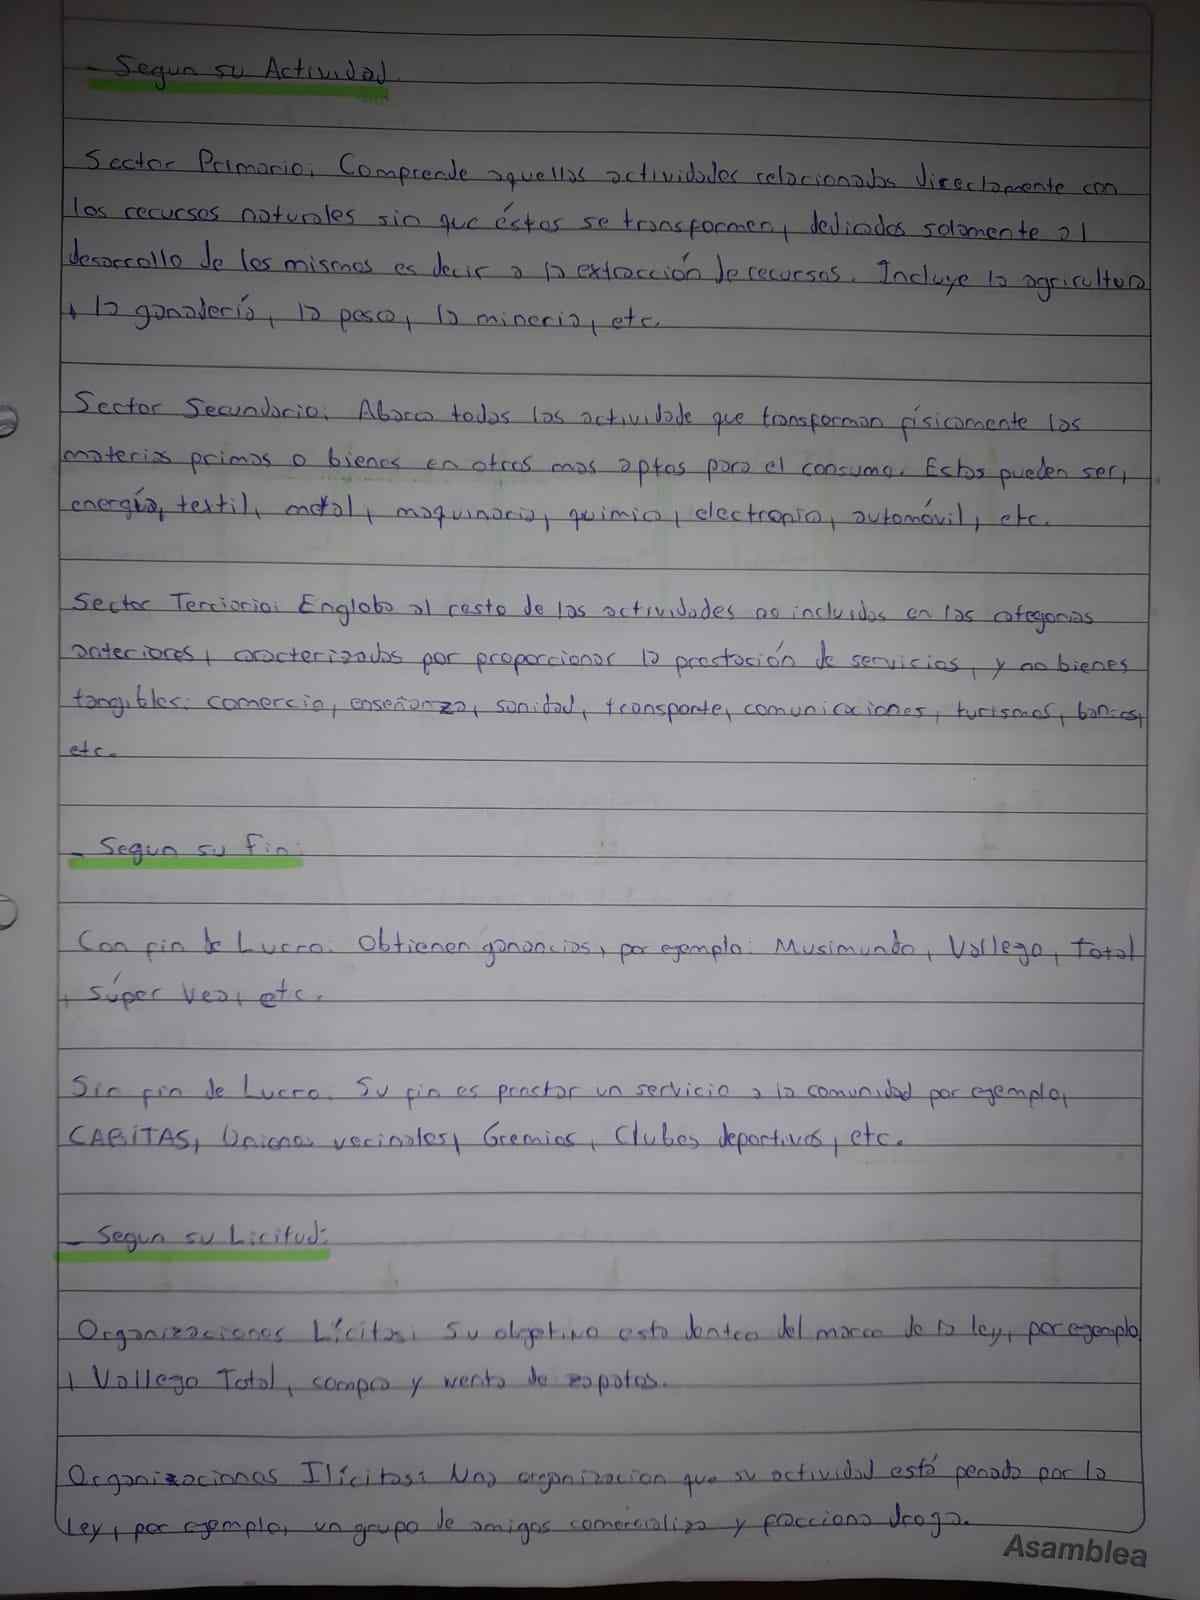 - Segun su Actividad.
Sector Primario: Comprende aquellas actividades relacionadas directamente con
los recursos naturales sin que éstos se transformen, dedicados solamente al
desarrollo de los mismos es decir a la extracción de recursos. Incluye la agricultura
, la ganadería, la pesca, la mineria, etc.
Sector Secundario: Abarca todas las actividade que transforman físicamente las
materias primas o bienes en otros mas aptos para el consumo. Estos pueden ser,
energía, textil, metal, maquinaria, quimica, electronia, automóvil, etc.
Sector Terciario: Engloba al resto de las actividades no incluidas en las categorias
anteriores, caracterizados por proporcionar la prestación de servicios, y no bienes
tangibles: comercio, enseñanza, sanidad, transporte, comunicaciones, turismos, bancos,
etc.
- Segun su fin:
Con fin de Lucro: Obtienen ganancias, por ejemplo: Musimundo, Vallega, Total
, Súper Vea, etc.
Sin fin de Lucro: Su fin es prestar un servicio a la comunidad por ejemplo,
CARITAS, Uniones vecinales, Gremios, Clubes deportivos, etc.
- Segun su Licitud:
Organizaciones Lícitas: Su objetivo esta dentro del marco de la ley, por ejemplo
, Vallega Total, compra y venta de zapatos.
Organizaciones Ilícitas: Una organizacion que su actividad está penada por la
Ley, por ejemplo, un grupo de amigos comercializa y facciona droga.
Asamblea